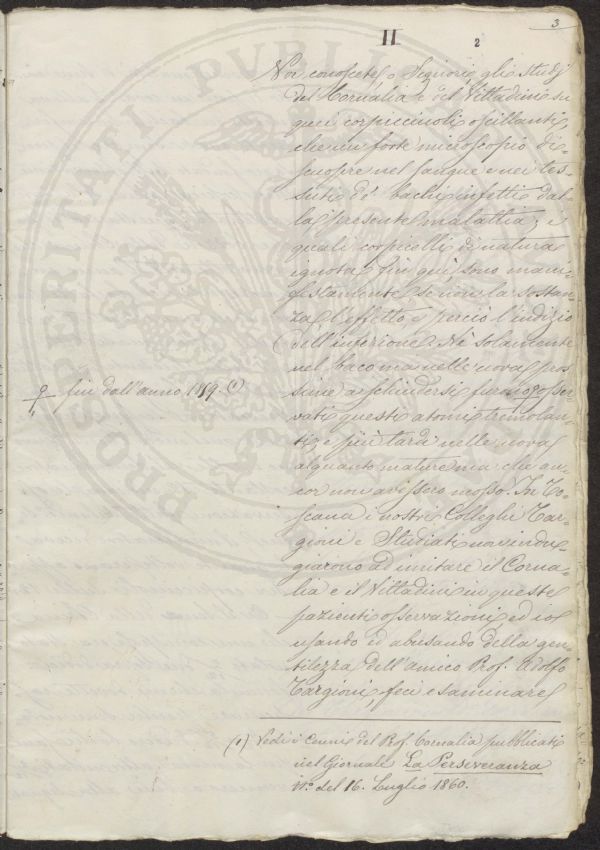 3
II
2
Voi conoscete, o Signori, gli studj
del Cornalia e del Vittadini su
quei corpicciuoli oscillanti,
che un forte microscopio di-
scuopre nel sangue e nei tes-
suti de' bachi infetti dal-
la presente malattia; i
quali corpicelli di natura
ignota fin quì sono mani-
festamente se non la sostan-
za, l'effetto, e perciò l'indizio
dell'infezione. Nè solamente
nel baco ma nelle uova pros-
fin dall'anno 1859. (1)
sime a schiudersi furono osser-
vati questi atomi tremolan-
ti, e più tardi nelle uova
alquanto mature ma che an-
cor non avessero mosso. In To-
scana i nostri Colleghi Tar-
gioni e Studiati non indu-
giarono ad imitare il Corna-
lia e il Vittadini in queste
pazienti osservazioni, ed io
usando ed abusando della gen-
tilezza dell'amico Prof. Adolfo
Targioni, feci esaminare
(1) Vedi i Cenni del Prof. Cornalia pubblicati
nel Giornale La Perseveranza
N.º del 16. Luglio 1860.
PROSPERITATI PVBLI